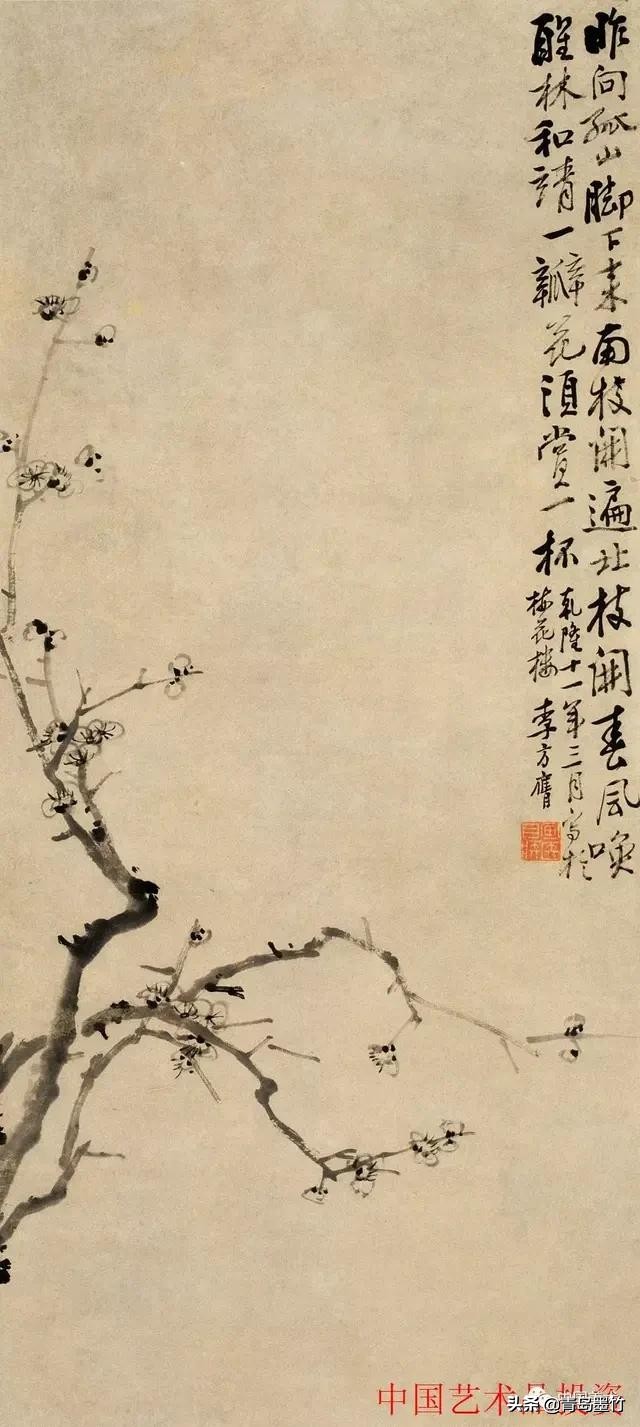 昨向孤山脚下来南枝開遍北枝開春風喚
醒林和靖一瓣花須賞一杯
乾隆十一年三月寫於
梅花樓 李方膺
中国艺术品投资
头条 @青岛墨竹